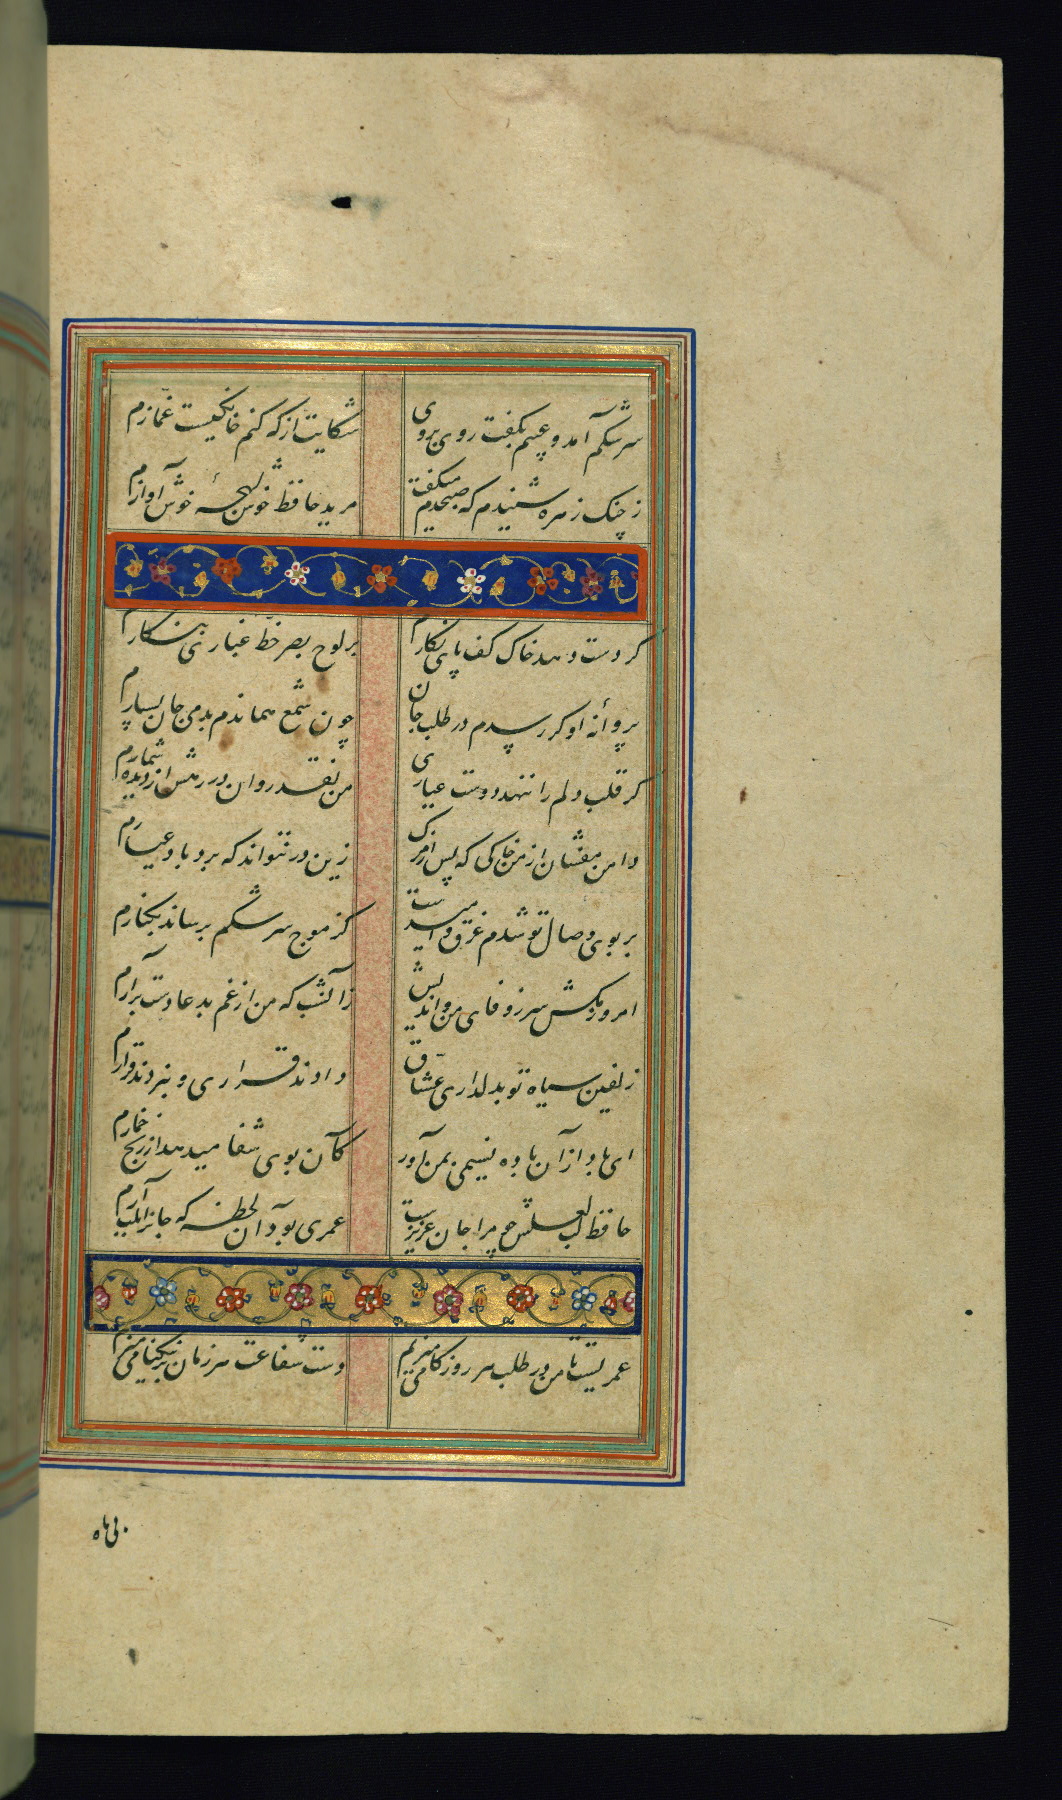 سرشکم آمد و چشم بگفت روی بروی شکایت از که کنم خانگیست غمازم
ز چنگ زهره شنیدم که صبحدم میگفت مرید حافظ خوش لهجهٔ خوش آوازم
گر دست دهد خاک کف پای نگارم بر لوح بصر خط غباری بنگارم
پروانه او گر رسدم در طلب جان چون شمع هماندم بدمی جان بسپارم
گر قلب دلم را ننهد دوست عیاری من نقد روان در رهش از دیده شمارم
دامن مفشان از من خاکی که پس از مرگ زین در نتواند که برد باد غبارم
بر بوی وصال تو شدم غرق و امیدست کز موج سرشکم برساند بکنارم
امروز مکش سر ز وفای من و اندیش زآن شب که من از غم بدعا دست برآرم
زلفین سیاه تو بدلداری عشاق دادند قراری و ببردند قرارم
ای باد از آن باده نسیمی بمن آور کآن بوی شفا میدهد از رنج خمارم
حافظ لب لعلش چو مرا جان عزیزست عمری بود آن لحظه که جانرا بلب آرم
عمریست تا من در طلب هر روز گامی میزنم دست شفاعت هر زمان بر نیکنامی میزنم
بی ماه